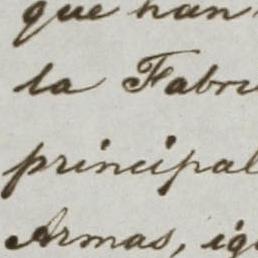 que han
la Fabri
principal
Armas, ig